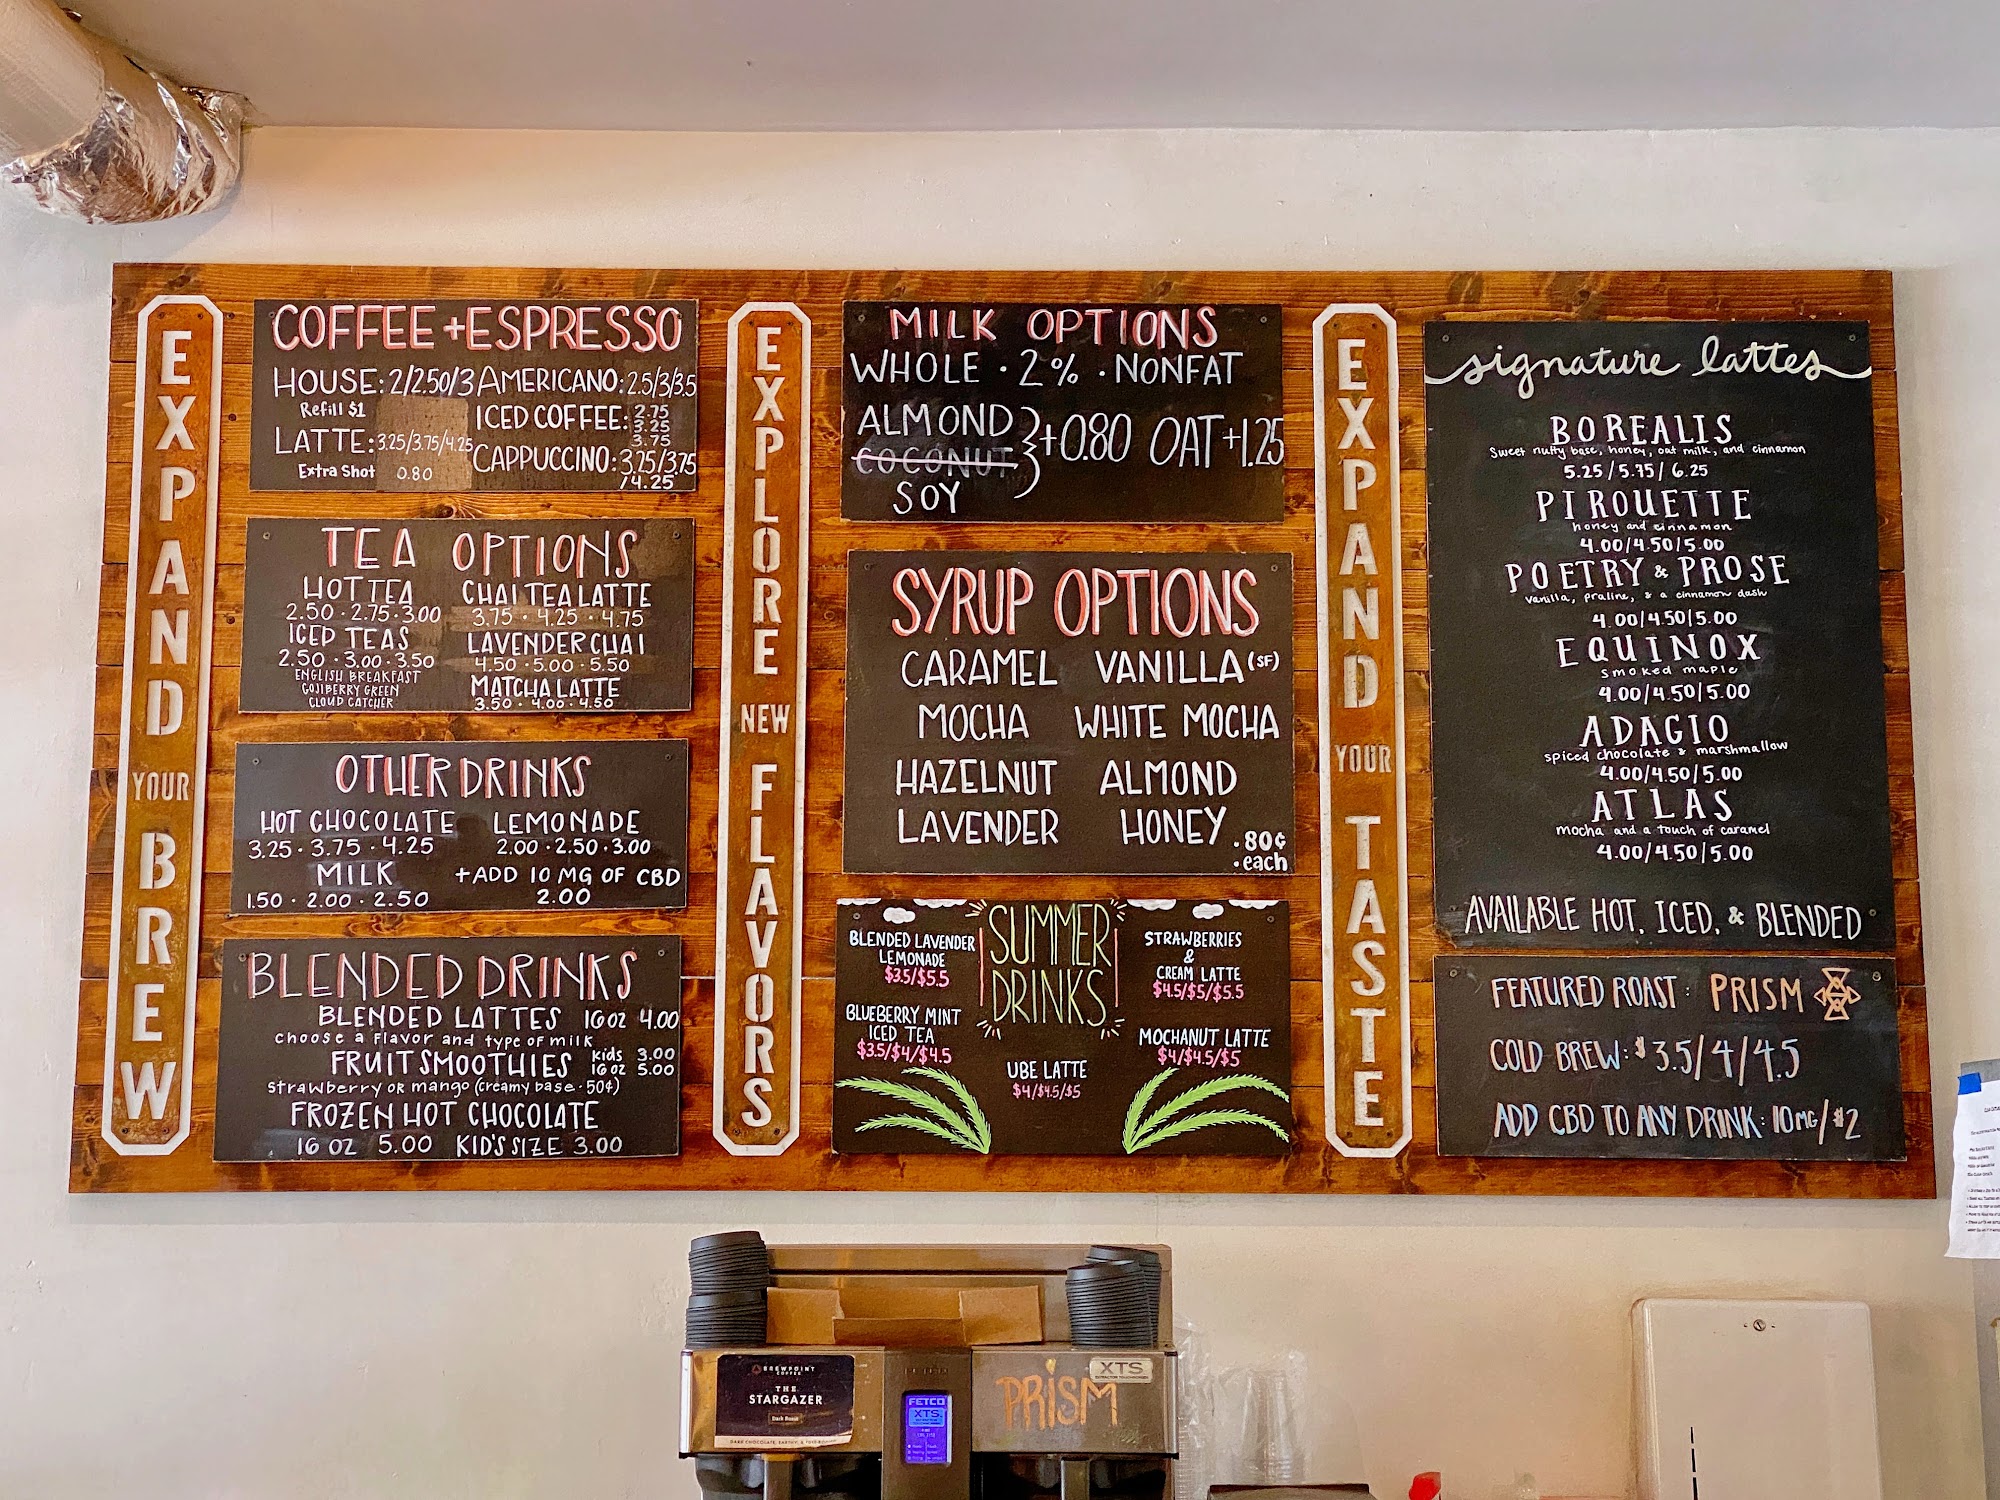 EXPAND YOUR BREW
COFFEE + ESPRESSO
HOUSE: 2/2.50/3
Refill $1
LATTE: 3.25/3.75/4.25
Extra Shot 0.80
AMERICANO: 2.5/3/3.5
ICED COFFEE: 2.75
3.25
3.75
CAPPUCCINO: 3.25/3.75
/4.25
TEA OPTIONS
HOT TEA
2.50 · 2.75 · 3.00
ICED TEAS
2.50 · 3.00 · 3.50
ENGLISH BREAKFAST
GOJIBERRY GREEN
CLOUD CATCHER
CHAI TEA LATTE
3.75 · 4.25 · 4.75
LAVENDER CHAI
4.50 · 5.00 · 5.50
MATCHA LATTE
3.50 · 4.00 · 4.50
OTHER DRINKS
HOT CHOCOLATE
3.25 · 3.75 · 4.25
MILK
1.50 · 2.00 · 2.50
LEMONADE
2.00 · 2.50 · 3.00
+ADD 10 MG OF CBD
2.00
BLENDED DRINKS
BLENDED LATTES 16 OZ 4.00
choose a flavor and type of milk
FRUIT SMOOTHIES kids 3.00
16 OZ 5.00
strawberry or mango (creamy base · 50¢)
FROZEN HOT CHOCOLATE
16 OZ 5.00 KID'S SIZE 3.00
EXPLORE NEW FLAVORS
MILK OPTIONS
WHOLE · 2% · NONFAT
ALMOND
COCONUT
SOY
+0.80 OAT +1.25
SYRUP OPTIONS
CARAMEL VANILLA (SF)
MOCHA WHITE MOCHA
HAZELNUT ALMOND
LAVENDER HONEY
· 80¢
· each
SUMMER DRINKS
BLENDED LAVENDER
LEMONADE
$3.5/$5.5
BLUEBERRY MINT
ICED TEA
$3.5/$4/$4.5
STRAWBERRIES
&
CREAM LATTE
$4.5/$5/$5.5
MOCHANUT LATTE
$4/$4.5/$5
UBE LATTE
$4/$4.5/$5
EXPAND YOUR TASTE
signature lattes
BOREALIS
Sweet nutty base, honey, oat milk, and cinnamon
5.25/5.75/6.25
PIROUETTE
honey and cinnamon
4.00/4.50/5.00
POETRY & PROSE
vanilla, praline, & a cinnamon dash
4.00/4.50/5.00
EQUINOX
smoked maple
4.00/4.50/5.00
ADAGIO
spiced chocolate & marshmallow
4.00/4.50/5.00
ATLAS
mocha and a touch of caramel
4.00/4.50/5.00
AVAILABLE HOT, ICED, & BLENDED
FEATURED ROAST: PRISM
COLD BREW: $3.5/4/4.5
ADD CBD TO ANY DRINK: 10MG/$2
BREWPOINT
COFFEE
THE
STARGAZER
Dark Roast
FETCO
XTS
PRISM
XTS